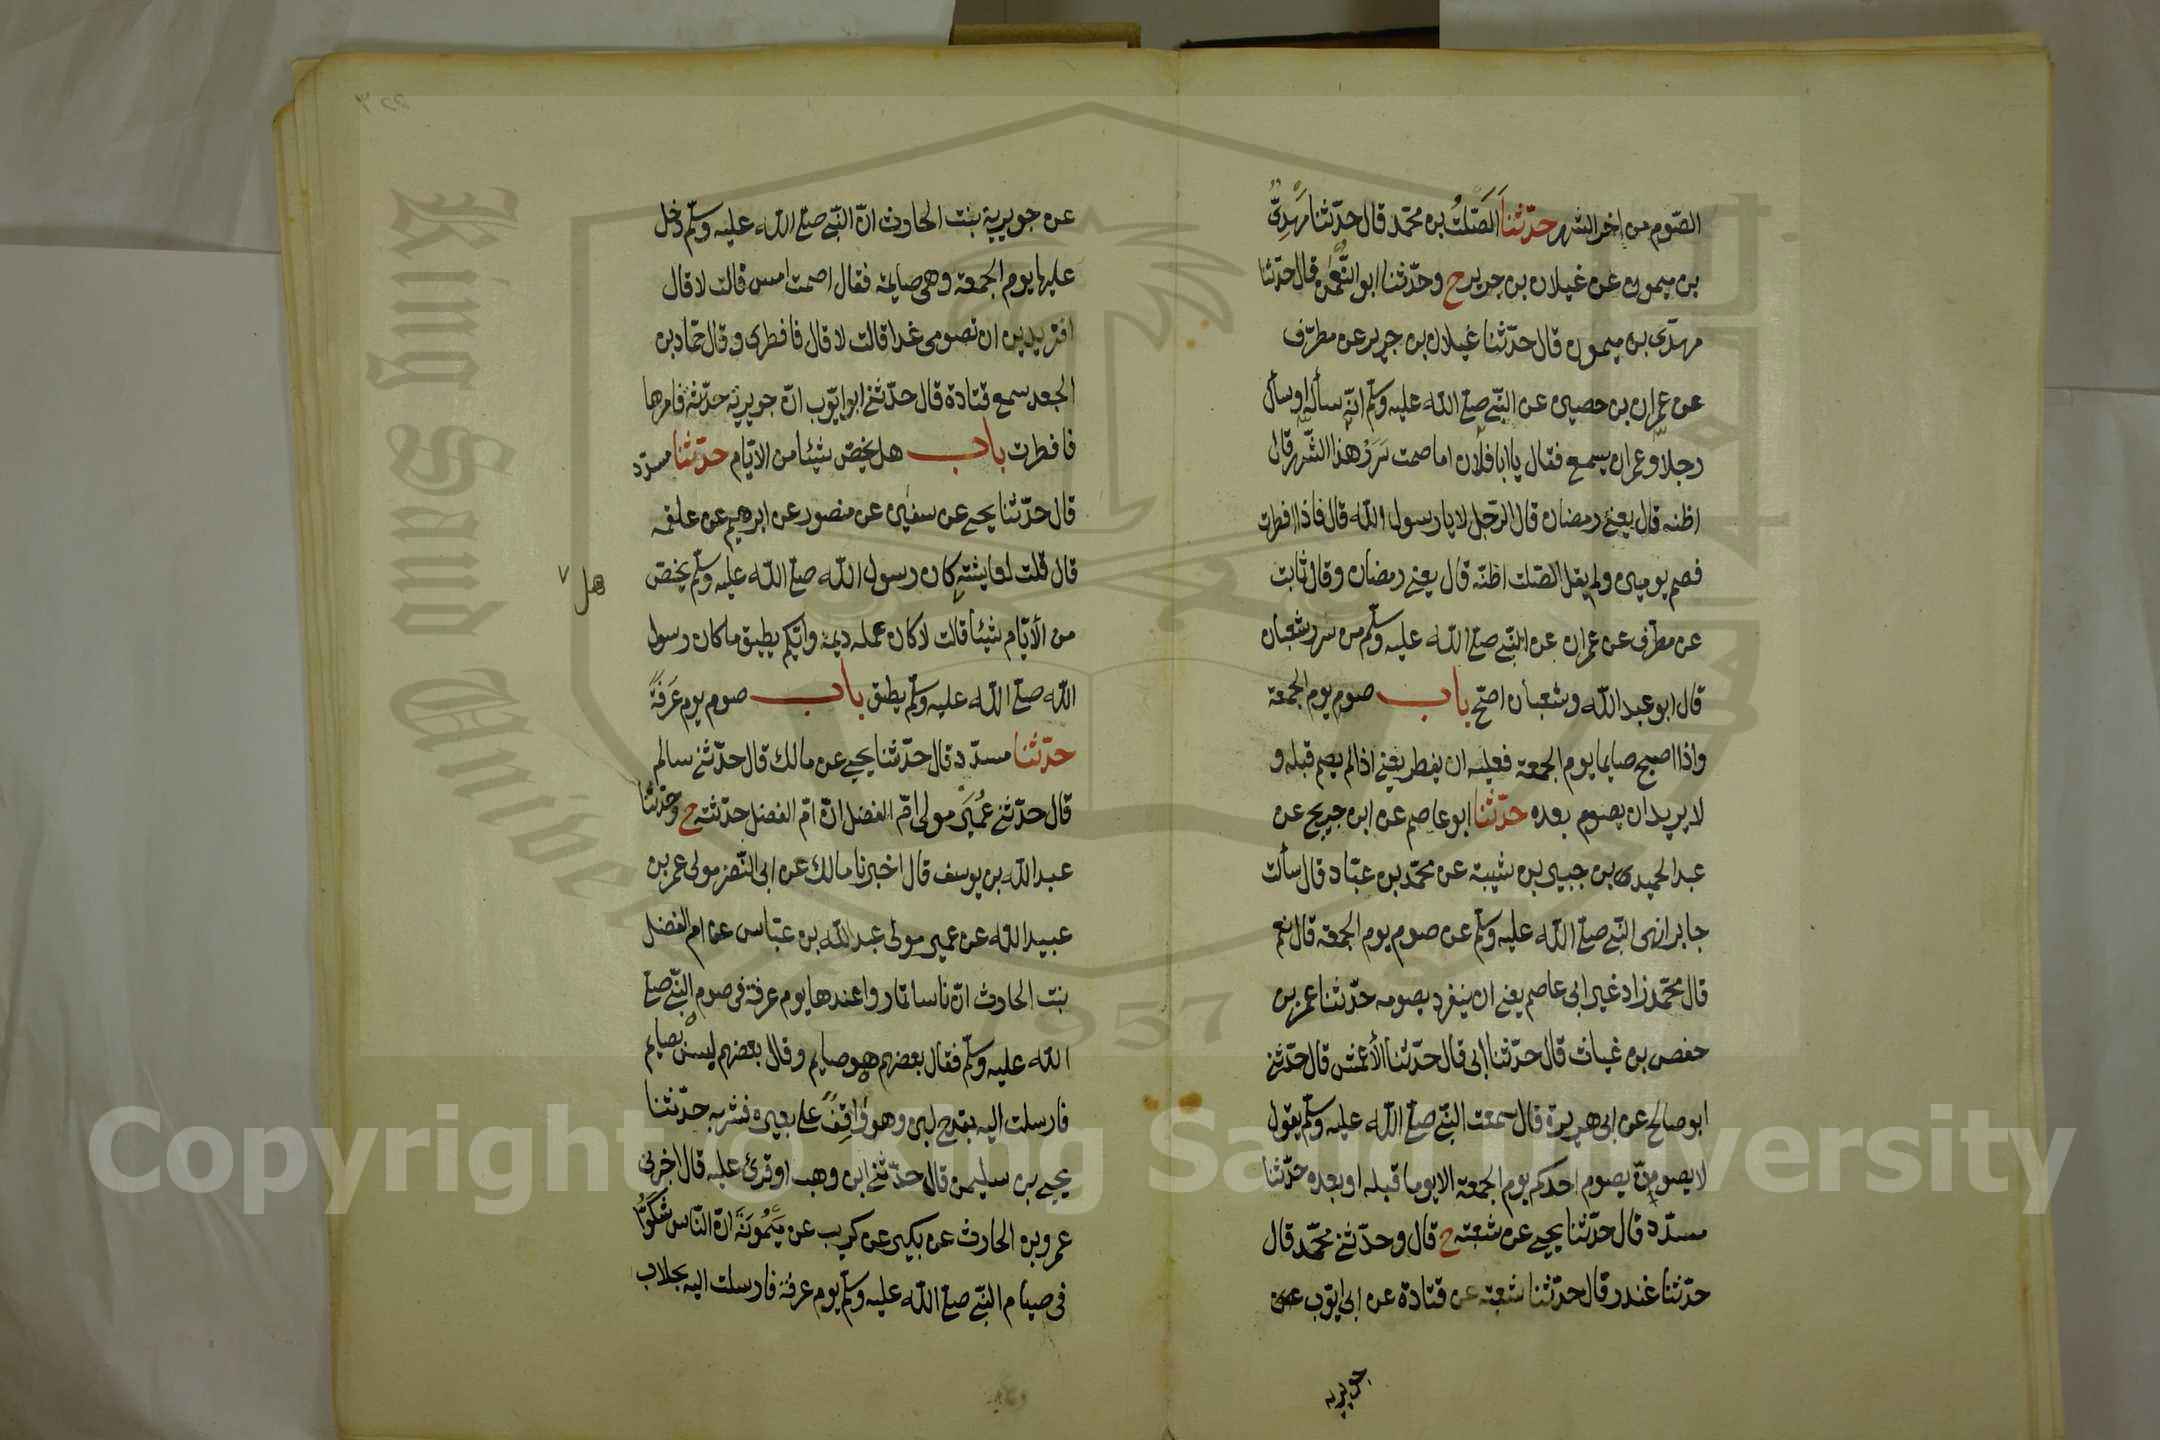 الصّوم من اخر الشهر حدّثنا الصَّلتُ بن محمّد قال حدّثنا مَهْدِىُّ
بن ميمون عن غيلان بن جرير ح وحدّثنا ابو النُّعْمٰن قال حدّثنا
مهدى بن ميمون قال حدّثنا غيلان بن جرير عن مطرّف
عن عمران بن حصين عن النّبى صلى الله عليه وسلّم انّه سأله او سأل
رجلا وعمران يسمع فقال يا ابا فلان اما صمت سَرَرَ هذا الشّهر قال
اظنه قال يعنى رمضان قال الرّجل لا يا رسول الله قال فاذا افطرت
فصم يومين ولم يقل الصّلت اظنّه قال يعنى رمضان وقال ثابت
عن مطرّف عن عمران عن النّبى صلى الله عليه وسلّم من سرر شعبان
قال ابو عبد الله وشعبان اصحّ باب صوم يوم الجمعة
واذا اصبح صايما يوم الجمعة فعليه ان يفطر يعنى اذا لم يصم قبله و
لا يريد ان يصوم بعده حدّثنا ابو عاصم عن ابن جريج عن
عبد الحميد بن جبير بن شيبة عن محمّد بن عبّاد قال سألت
جابرا نهى النّبى صلى الله عليه وسلّم عن صوم يوم الجمعة قال نعم
قال محمّد زاد غير ابى عاصم يعنى ان ينفرد بصومه حدّثنا عمر بن
حفص بن غياث قال حدّثنا ابى قال حدّثنا الأعمش قال حدّثنى
ابو صالح عن ابى هريرة قال سمعت النّبى صلى الله عليه وسلّم يقول
لا يصومنّ يصوم احدكم يوم الجمعة الا يوما قبله او بعده حدّثنا
مسدّد قال حدّثنا يحيى عن شعبة ح قال وحدّثنى محمّد قال
حدّثنا غندر قال حدّثنا شعبة عن قتادة عن ابى ايّوب عن
جويرية
عن جويرية بنت الحارث انّ النّبى صلى الله عليه وسلّم دخل
عليها يوم الجمعة وهى صايمة فقال اصمت امس قالت لا قال
افتريدين ان تصومى غدا قالت لا قال فافطرى وقال حمّاد بن
الجعد سمع قتادة قال حدّثنى ابو ايّوب انّ جويرية حدّثته فامرها
فافطرت باب هل يخصّ شيئا من الايّام حدّثنا مسدّد
قال حدّثنا يحيى عن سفين عن منصور عن ابرهيم عن علقمة
قال قلت لعايشة كان رسول الله صلى الله عليه وسلّم يخصّ
هل
من الأيّام شيئا قالت لا كان عمله ديمة وايّكم يطيق ما كان رسول
الله صلى الله عليه وسلّم يطيق باب صوم يوم عَرَفَةَ
حدّثنا مسدّد قال حدّثنا يحيى عن مالك قال حدّثنى سالم
قال حدّثنى عُمَيْر مولى امّ الفضل انّ امّ الفضل حدّثته ح وحدّثنا
عبد الله بن يوسف قال اخبرنا مالك عن ابى النّضر مولى عمر بن
عبيد الله عن عمير مولى عبد الله بن عبّاس عن ام الفضل
بنت الحارث انّ ناسا تماروا عندها يوم عرفة فى صوم النّبى صلى
الله عليه وسلّم فقال بعضهم هو صايم وقال بعضهم ليس بصايم
فارسلت اليه بقدح لبن وهو وَاقِفٌ على بعيره فشربه حدّثنا
يحيى بن سليمن قال حدّثنى ابن وهب او قرئ عليه قال اخبرنى
عمرو بن الحارث عن بكير عن كريب عن مَيْمُونَةَ انّ النّاس شَكُّوْا
فى صيام النّبى صلى الله عليه وسلّم يوم عرفة فارسلت اليه بحلاب
Copyright © King Saud University
King Saud University
1957